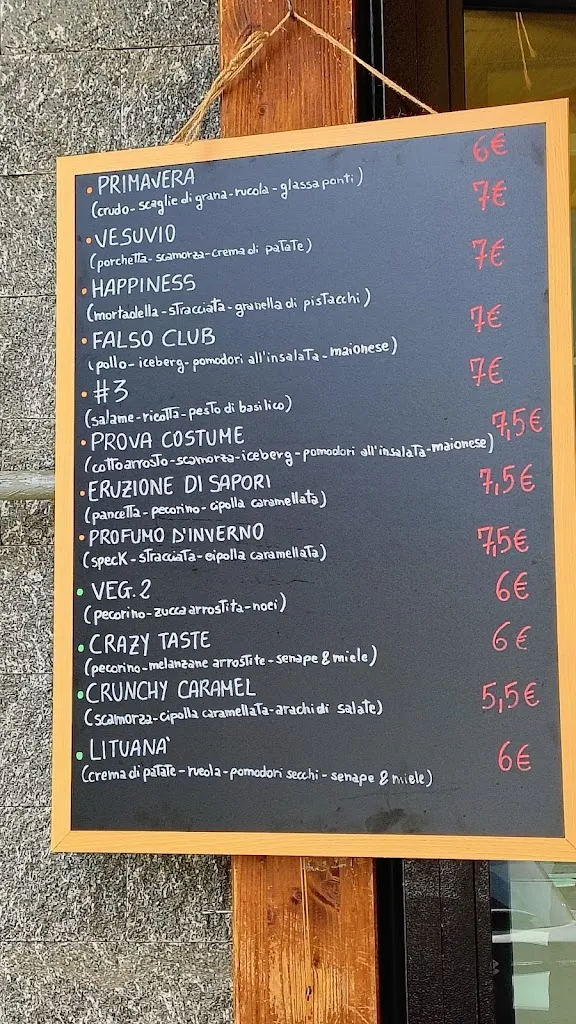 • PRIMAVERA 6€
(crudo-scaglie di grana-rucola-glassa ponti)
• VESUVIO 7€
(porchetta-scamorza-crema di patate)
• HAPPINESS 7€
(mortadella-stracciata-granella di pistacchi)
• FALSO CLUB 7€
(pollo-iceberg-pomodori all'insalata-maionese)
• #3 7€
(salame-ricotta-pesto di basilico)
• PROVA COSTUME 7,5€
(cotto arrosto-scamorza-iceberg-pomodori all'insalata-maionese)
• ERUZIONE DI SAPORI 7,5€
(pancetta-pecorino-cipolla caramellata)
• PROFUMO D'INVERNO 7,5€
(speck-stracciata-cipolla caramellata)
• VEG.2 6€
(pecorino-zucca arrostita-noci)
• CRAZY TASTE 6€
(pecorino-melanzane arrostite-senape & miele)
• CRUNCHY CARAMEL 5,5€
(scamorza-cipolla caramellata-arachidi salate)
• LITUANA' 6€
(crema di patate-rucola-pomodori secchi-senape & miele)